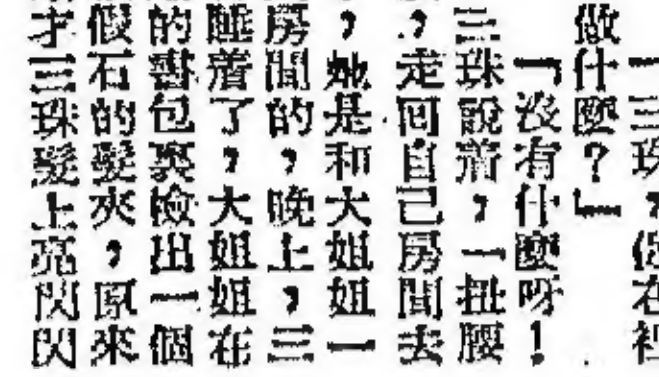 一三珠，你在裡
做什麼？」
「沒有什麼呀！
三珠說着，一扭腰
，走回自己房間去
，她是和大姐姐一
房間的，晚上，三
睡着了，大姐姐在
的書包裏檢出一個
假石的髮夾，原來
才三珠髮上亮閃閃